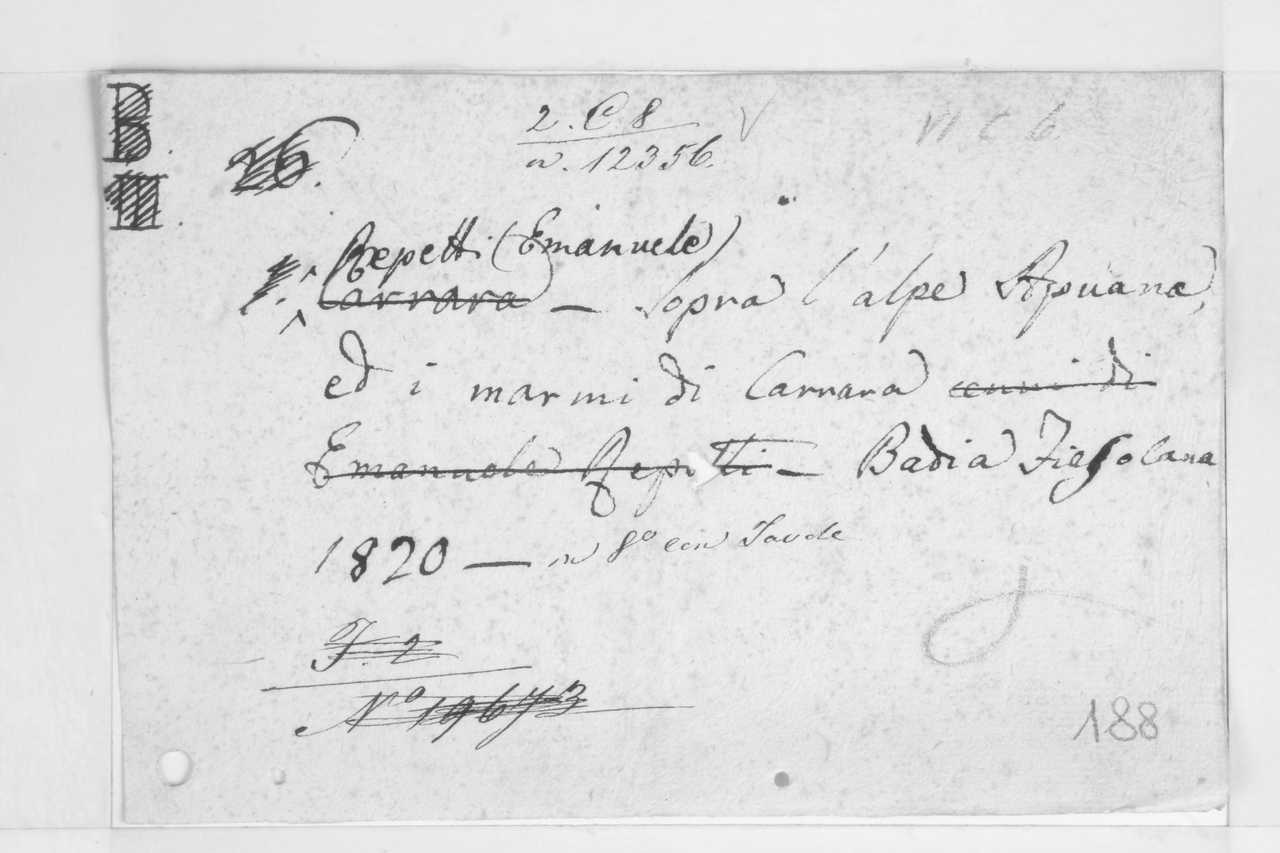 B.
II.
26.
2. C 8
n. 12356.
VI C 6
Repetti (Emanuele)
Carrara — Sopra l'alpe Apuana,
ed i marmi di Carrara cenni di
Emanuele Repetti — Badia Fiesolana
1820 — in 8º con Tavole
F. 2
Nº 19673
188